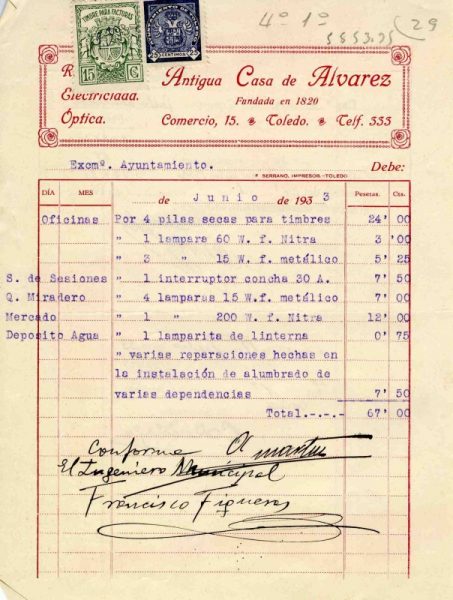 4º 1º
29
TIMBRE PARA FACTURAS
15 Cs
25 CENTIMOS 25
R.
Electricidad.
Óptica.
Antigua Casa de Alvarez
Fundada en 1820
Comercio, 15. Toledo. Telf. 333
Excmº. Ayuntamiento. Debe:
F. SERRANO, IMPRESOR.-TOLEDO
DÍA MES de Junio de 1933 Pesetas. Cts.
Oficinas Por 4 pilas secas para timbres 24' 00
" 1 lampara 60 W. f. Nitra 3 '00
" 3 " 15 W.f. metálico 5' 25
S. de Sesiones " 1 interruptor concha 30 A. 7' 50
Q. Miradero " 4 lamparas 15 W.f. metálico 7' 00
Mercado " 1 " 200 W.f. Nitra 12' 00
Deposito Agua " 1 lamparita de linterna 0' 75
" varias reparaciones hechas en
la instalación de alumbrado de
varias dependencias 7' 50
Total.-.-.- 67' 00
Conforme
El Ingeniero Municipal
Francisco Figueras